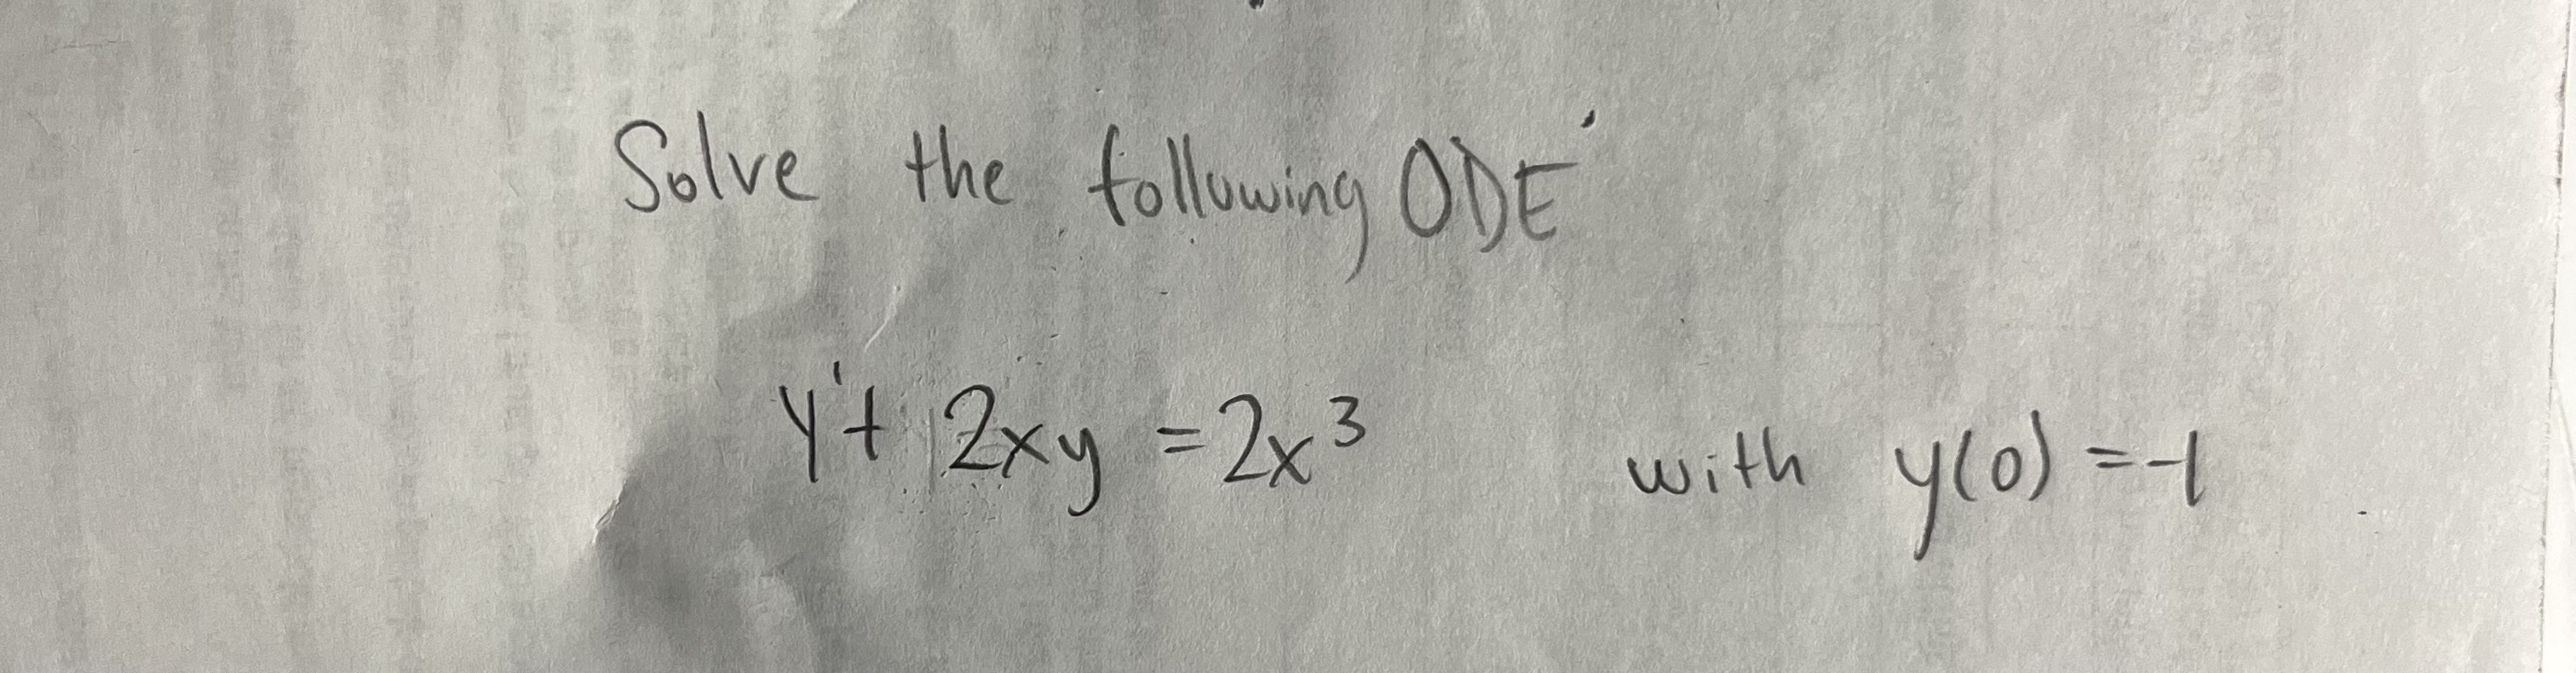 Solve the following ODE
y' + 2xy = 2x³ with y(0) = -1